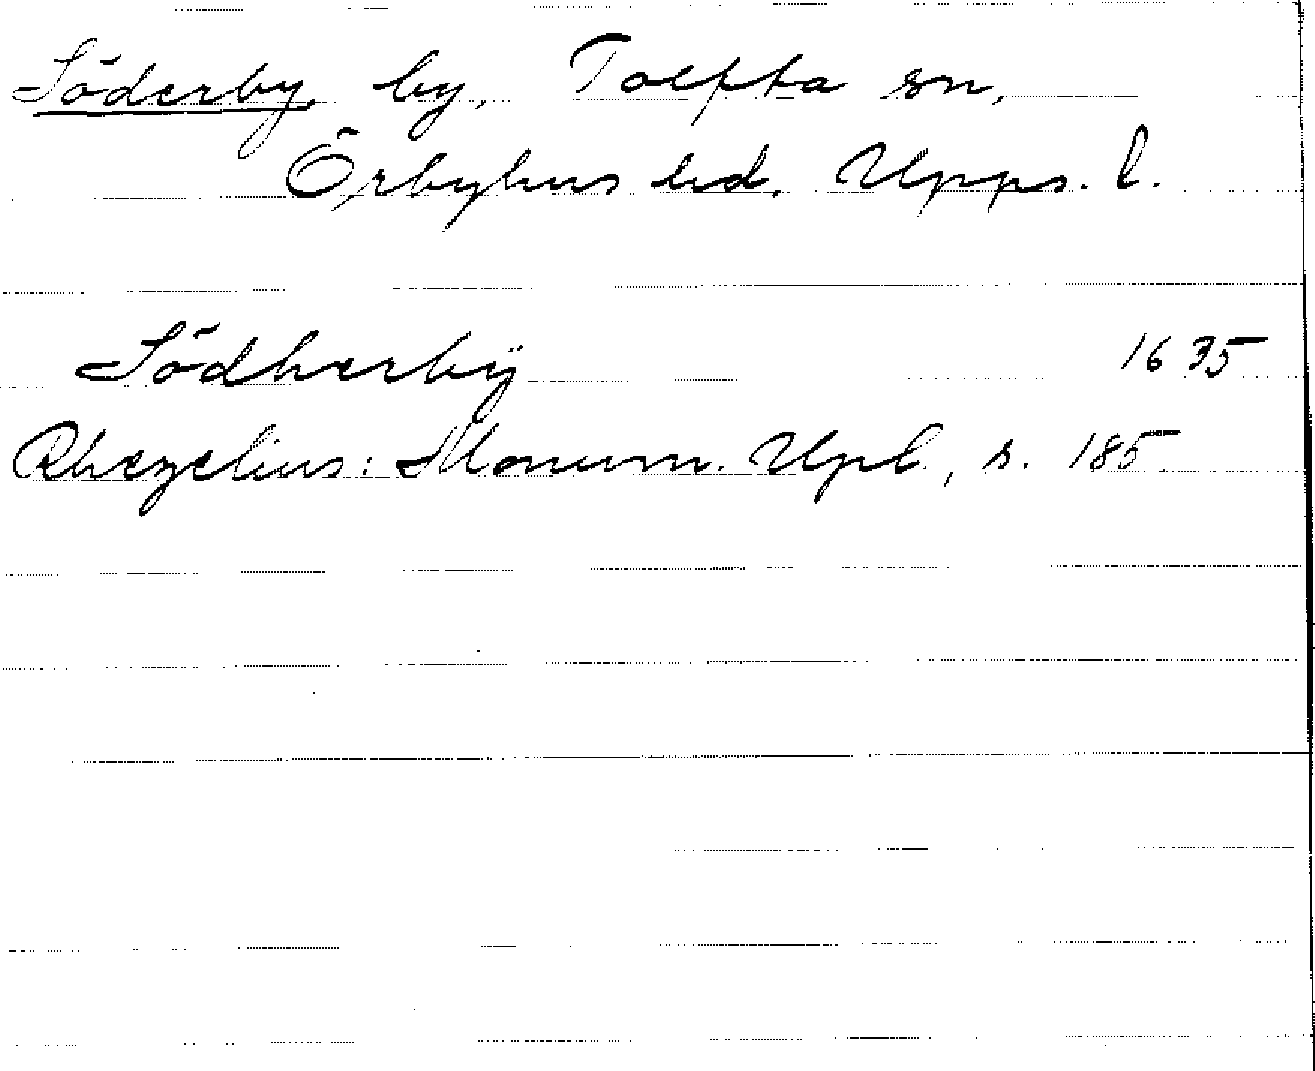 Söderby, by, Tolfta sn,
Örbyhus hd, Upps. l.
Södherbÿ 1635
Rhezelius: Monum. Upl., s. 185